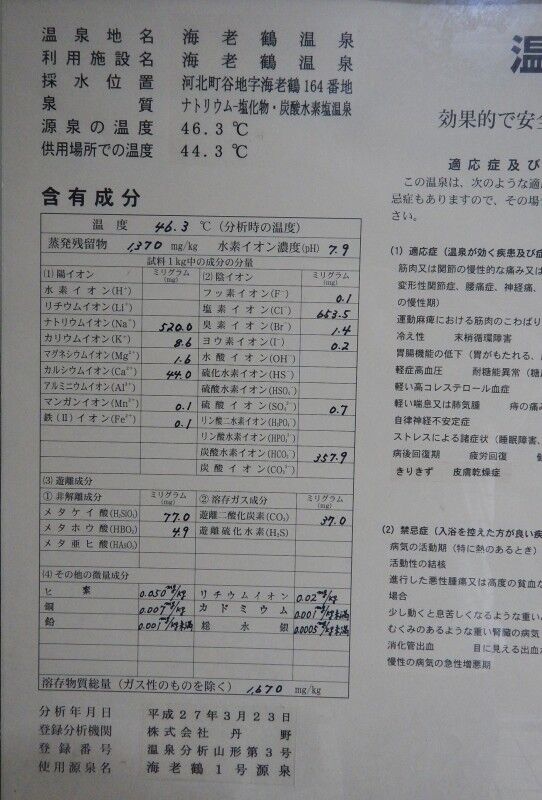 温泉地名 海老鶴温泉
利用施設名 海老鶴温泉
採水位置 河北町谷地字海老鶴164番地
泉質 ナトリウム-塩化物・炭酸水素塩温泉
源泉の温度 46.3℃
供用場所での温度 44.3℃
含有成分
温度 46.3 ℃(分析時の温度)
蒸発残留物 1,370 mg/kg 水素イオン濃度(pH) 7.9
試料1kg中の成分の分量
(1)陽イオン ミリグラム(mg) (2)陰イオン ミリグラム(mg)
水素イオン(H⁺) フッ素イオン(F⁻) 0.1
リチウムイオン(Li⁺) 塩素イオン(Cl⁻) 653.5
ナトリウムイオン(Na⁺) 520.0 臭素イオン(Br⁻) 1.4
カリウムイオン(K⁺) 8.6 ヨウ素イオン(I⁻) 0.2
マグネシウムイオン(Mg²⁺) 1.6 水酸イオン(OH⁻)
カルシウムイオン(Ca²⁺) 44.0 硫化水素イオン(HS⁻)
アルミニウムイオン(Al³⁺) 硫酸水素イオン(HSO₄⁻)
マンガンイオン(Mn²⁺) 0.1 硫酸イオン(SO₄²⁻) 0.7
鉄(II)イオン(Fe²⁺) 0.1 リン酸二水素イオン(H₂PO₄⁻)
リン酸水素イオン(HPO₄²⁻)
炭酸水素イオン(HCO₃⁻) 357.9
炭酸イオン(CO₃²⁻)
(3)遊離成分
①非解離成分 ミリグラム(mg) ②溶存ガス成分 ミリグラム(mg)
メタケイ酸(H₂SiO₃) 77.0 遊離二酸化炭素(CO₂) 37.0
メタホウ酸(HBO₂) 4.9 遊離硫化水素(H₂S)
メタ亜ヒ酸(HAsO₂)
(4)その他の微量成分
ヒ素 0.050mg/kg リチウムイオン 0.02mg/kg
銅 0.007mg/kg カドミウム 0.001mg/kg未満
鉛 0.001mg/kg未満 総水銀 0.0005mg/kg未満
溶存物質総量(ガス性のものを除く) 1,670 mg/kg
分析年月日 平成27年3月23日
登録分析機関 株式会社丹野
登録番号 温泉分析山形第3号
使用源泉名 海老鶴1号源泉
温
効果的で安全
適応症及び
この温泉は、次のような適
忌症もありますので、その場
さい。
(1) 適応症(温泉が効く疾患及び症
筋肉又は関節の慢性的な痛み又は
変形性関節症、腰痛症、神経痛、
の慢性期)
運動麻痺における筋肉のこわばり
冷え性 末梢循環障害
胃腸機能の低下(胃がもたれる、
軽症高血圧 耐糖能異常(糖
軽い高コレステロール血症
軽い喘息又は肺気腫 痔の痛み
自律神経不安定症
ストレスによる諸症状(睡眠障害、
病後回復期 疲労回復
きりきず 皮膚乾燥症
(2) 禁忌症(入浴を控えた方が良い疾
病気の活動期(特に熱のあるとき)
活動性の結核
進行した悪性腫瘍又は高度の貧血な
場合
少し動くと息苦しくなるような重い
むくみのあるような重い腎臓の病気
消化管出血 目に見える出血
慢性の病気の急性増悪期